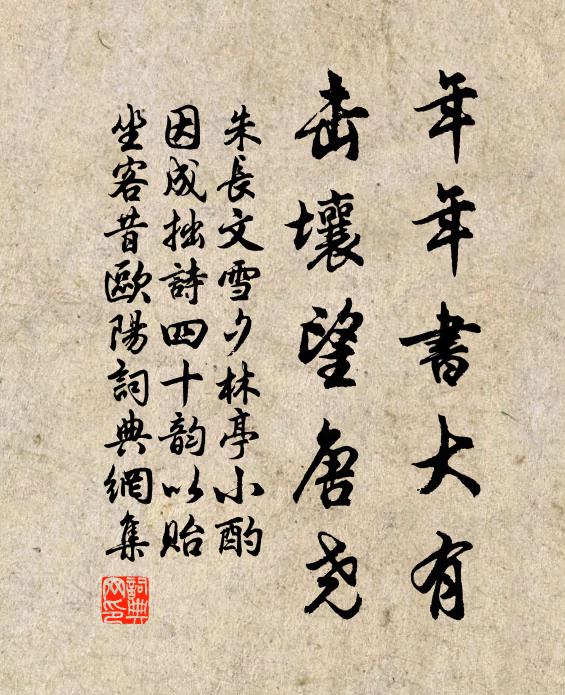 年年書大有
击壤望唐尧
朱長文雪夕林亭小酌
因成拙詩四十韵以贻
坐客昔歐陽詞典網集
詞典网印